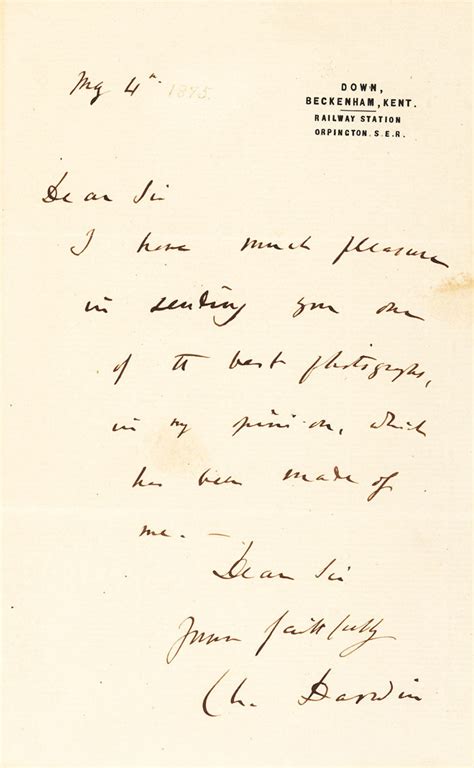 DOWN,
BECKENHAM, KENT.
RAILWAY STATION
ORPINGTON. S.E.R.
My 4th 1875.
Dear Sir
I have much pleasure
in sending you one
of the best photographs,
in my opinion, which
has been made of
me. —
Dear Sir
Yours faithfully
Ch. Darwin